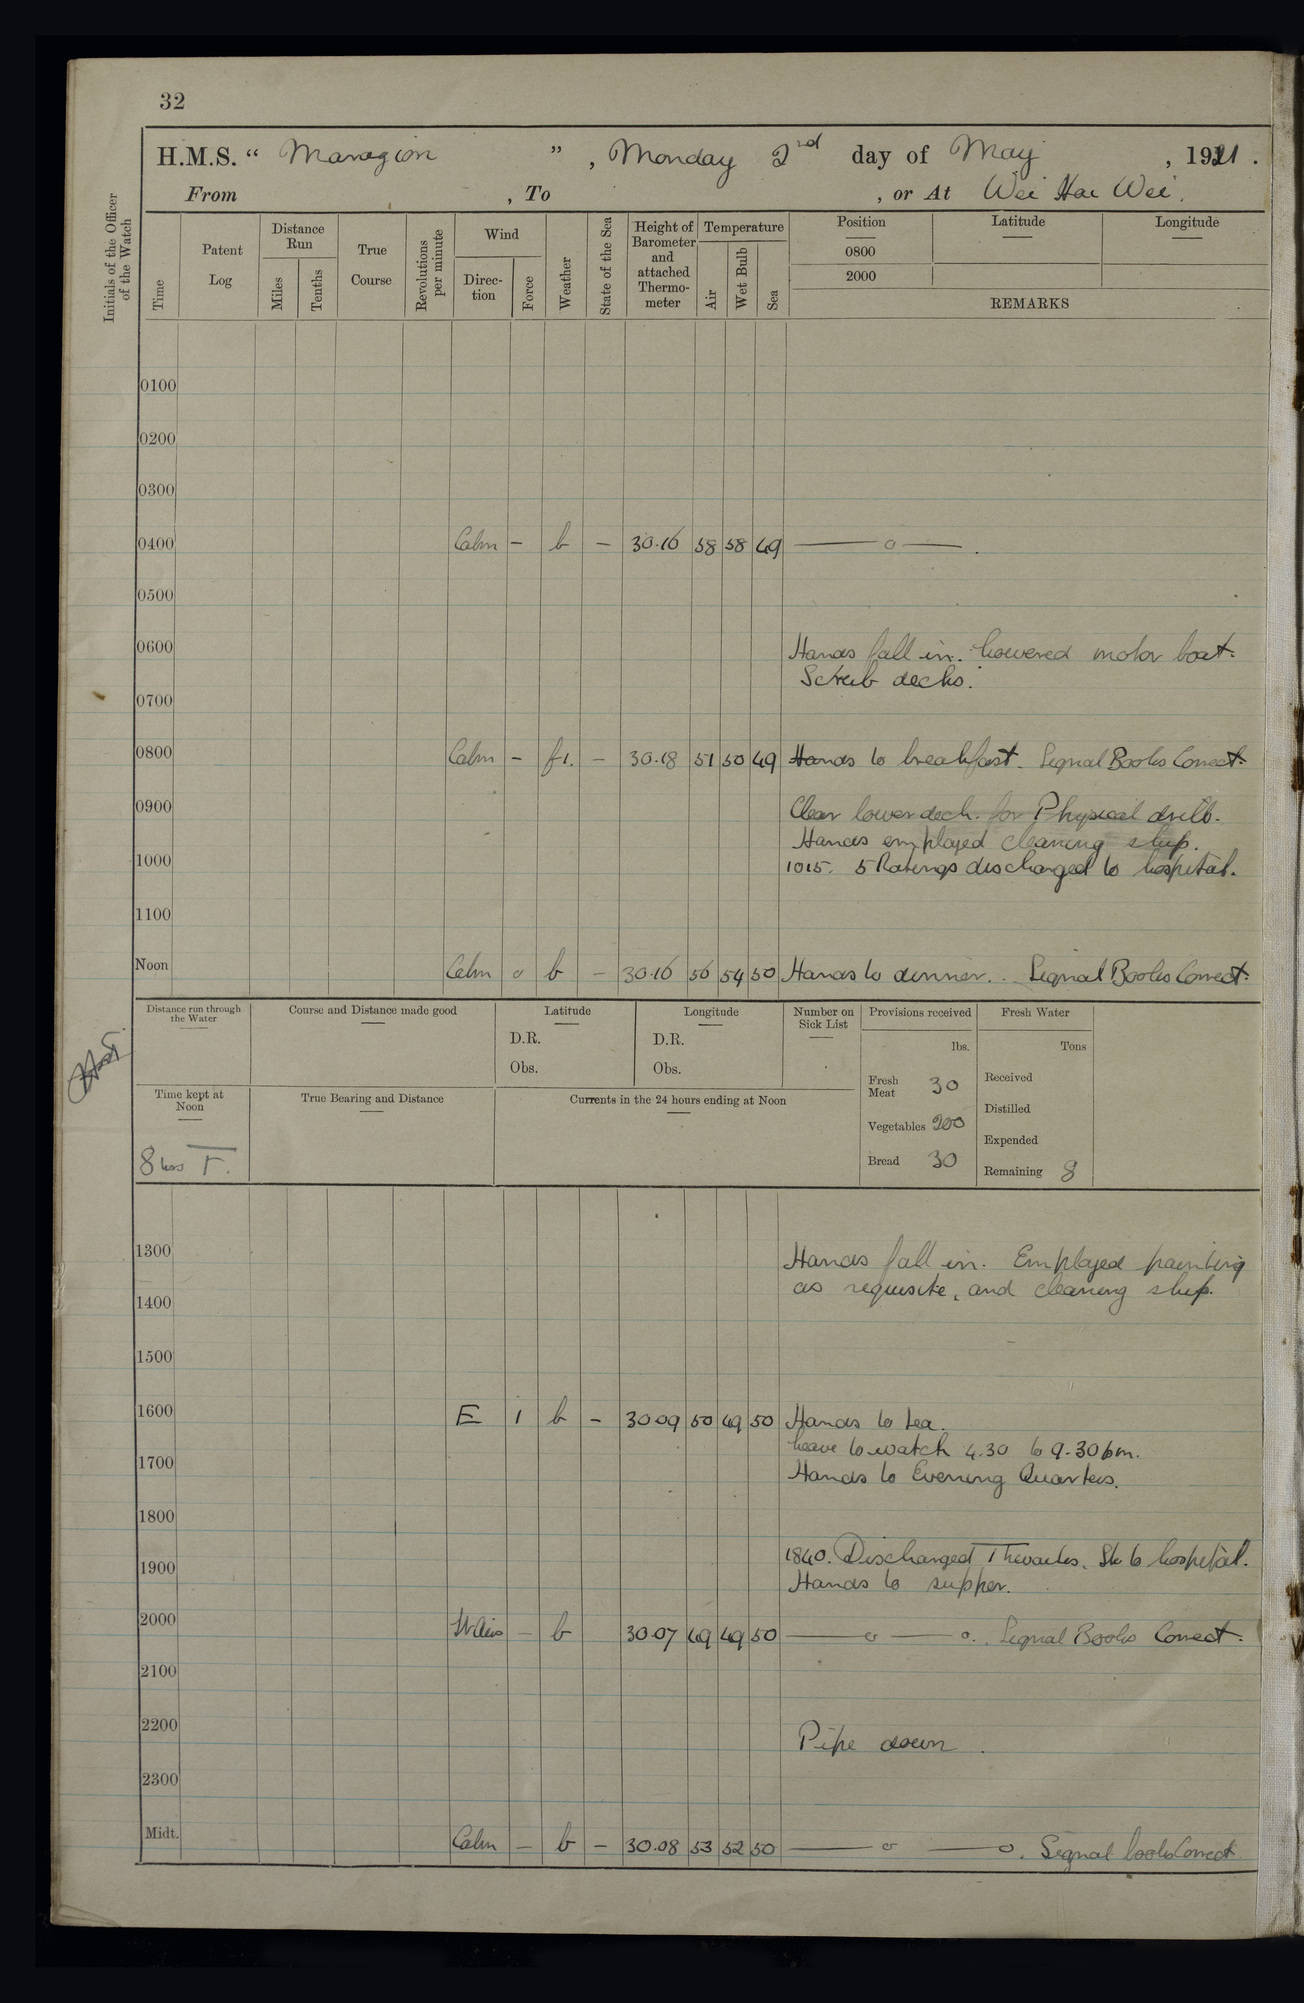 32
H.M.S. “ Marazion ”, Monday 2nd day of May, 1921.
From , To , or At Wei Hai Wei.
Initials of the Officer of the Watch
Time
Patent Log
Distance Run
Miles
Tenths
True Course
Revolutions per minute
Wind
Direc-tion
Force
Weather
State of the Sea
Height of Barometer and attached Thermo-meter
Temperature
Air
Wet Bulb
Sea
Position
0800
2000
Latitude
Longitude
REMARKS
0100
0200
0300
0400 Calm - b - 30.16 58 58 49 —— o —— .
0500
0600 Hands fall in. Lowered motor boat.
Scrub decks.
0700
0800 Calm - f1. - 30.18 51 50 49 Hands to breakfast. Signal Books Correct.
0900 Clear lower deck. for Physical drill.
Hands employed cleaning ship.
1000 1015. 5 Ratings discharged to hospital.
1100
Noon Calm o b - 30.16 56 54 50 Hands to dinner. Signal Books Correct.
Distance run through the Water
Course and Distance made good
Latitude
D.R.
Obs.
Longitude
D.R.
Obs.
Number on Sick List
Provisions received
lbs.
Fresh Meat 30
Vegetables 200
Bread 30
Fresh Water
Tons
Received
Distilled
Expended
Remaining 8
Time kept at Noon
8 hrs F.
True Bearing and Distance
Currents in the 24 hours ending at Noon
1300 Hands fall in. Employed painting
as requisite, and cleaning ship.
1400
1500
1600 E 1 b - 30.09 50 49 50 Hands to tea.
Leave to watch 4.30 to 9.30 pm.
1700 Hands to Evening Quarters.
1800
1840. Discharged Thwaites. Sto to hospital.
1900 Hands to supper.
2000 Lt Airs - b 30.07 49 49 50 —— o —— o. Signal Books Correct.
2100
2200 Pipe down.
2300
Midt. Calm - b - 30.08 53 52 50 —— o —— o. Signal books Correct